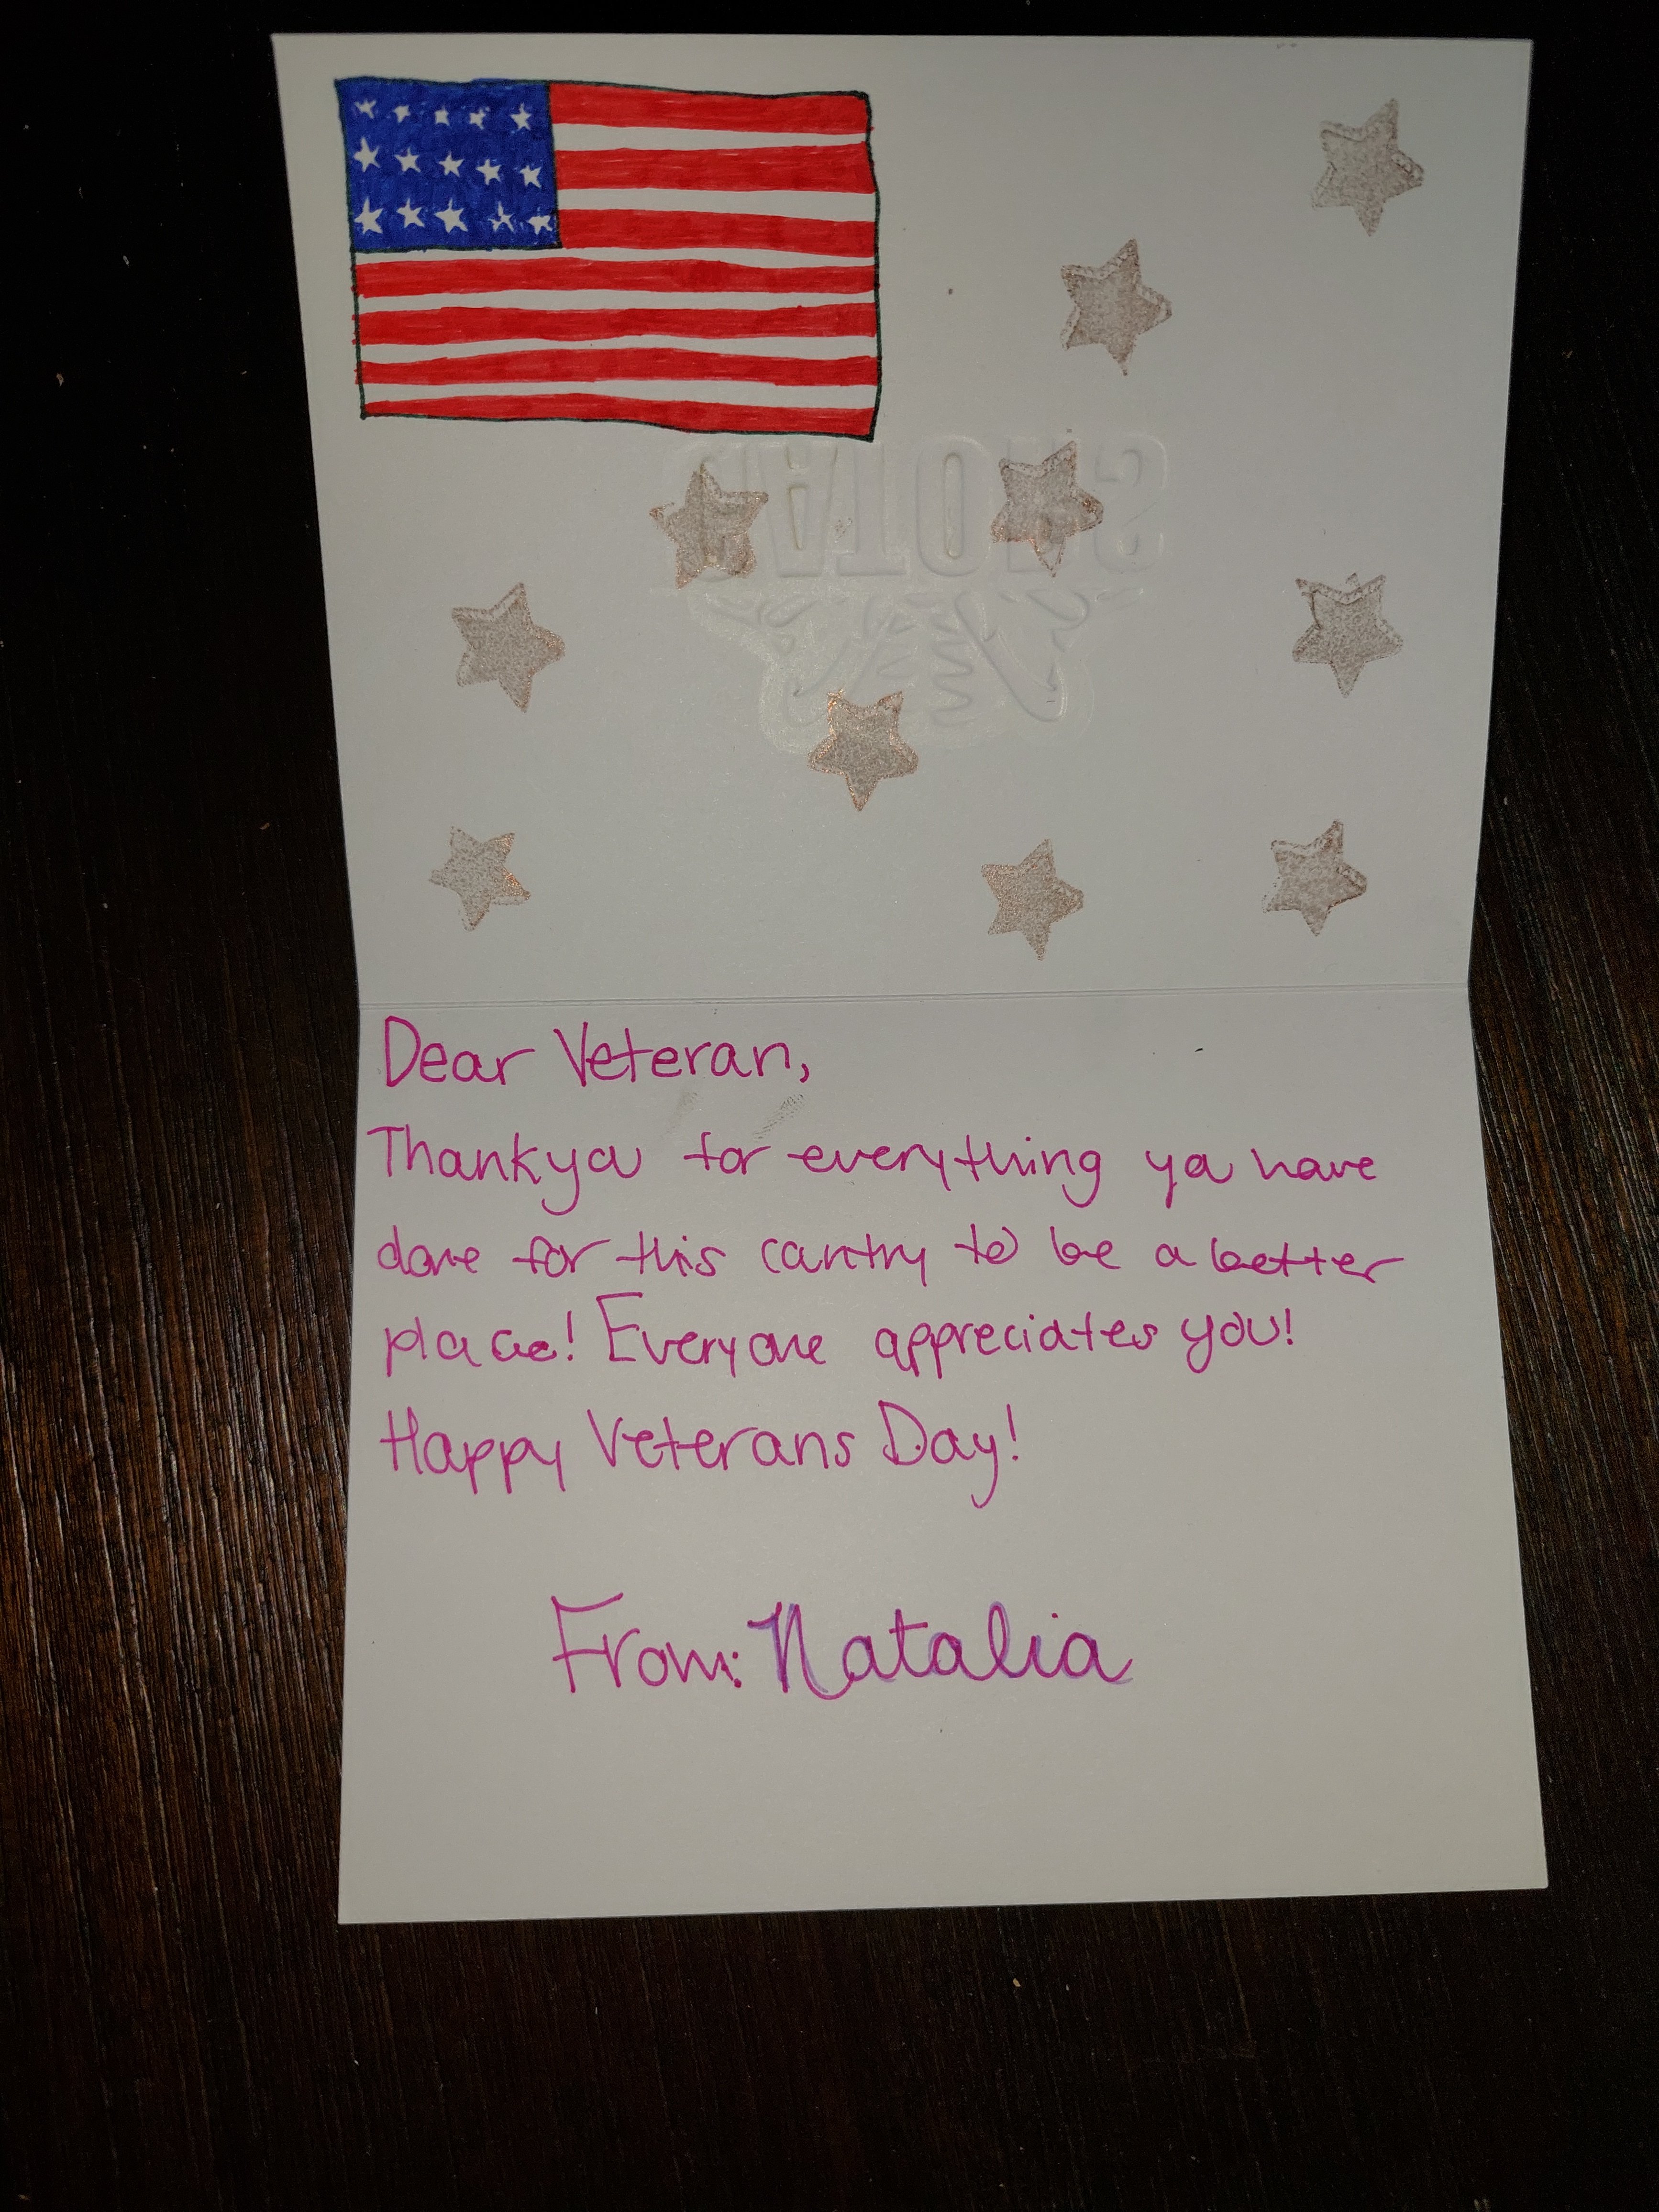 Dear Veteran,
Thank you for everything you have
done for this country to be a better
place! Everyone appreciates you!
Happy Veterans Day!
From: Natalia